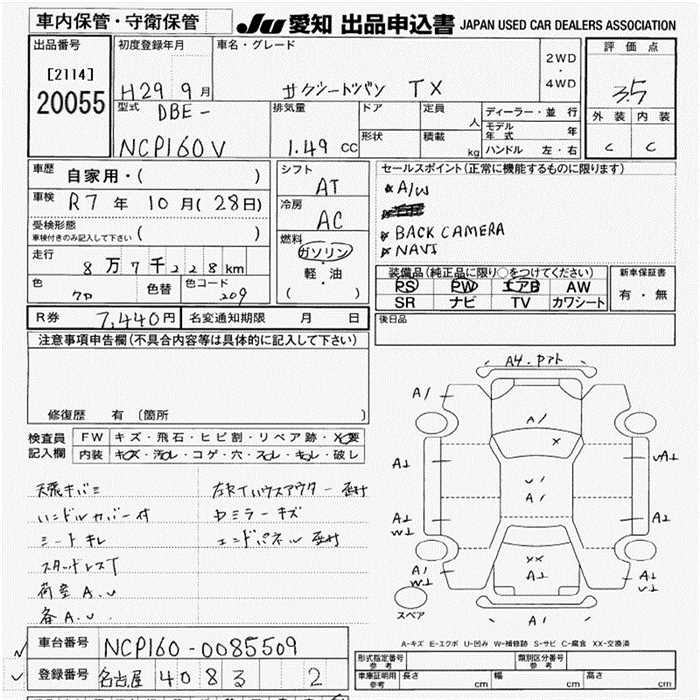 車内保管・守衛保管
JU 愛知 出品申込書 JAPAN USED CAR DEALERS ASSOCIATION
出品番号
[2114]
20055
初度登録年月
H29 9月
車名・グレード
サクシードバン TX
2WD
・
4WD
評価点
3.5
外装 内装
C C
型式
DBE-
NCP160V
排気量
1.49 CC
ドア
形状
定員 人
積載 kg
ディーラー・並行
モデル年式 年
ハンドル 左・右
車歴 自家用・( )
車検 R7年10月(28日)
受検形態
車検付きのみ記入して下さい ( )
走行
8万7千228km
色
クロ
色替
色コード
209
シフト
AT
冷房
AC
燃料
ガソリン
・
軽・油
( )
セールスポイント(正常に機能するものに限ります)
A/W
BACK CAMERA
NAVI
装備品(純正品に限り○をつけてください)
PS PW エアB AW
SR ナビ TV カワシート
新車保証書
有・無
R券 7,440円 名変通知期限 月 日
後日品
注意事項申告欄(不具合内容等は具体的に記入して下さい)
修復歴 有 〔箇所
検査員
記入欄
FW キズ・飛石・ヒビ割・リペア跡・X要
内装 キズ・汚れ・コゲ・穴・スレ・キレ・破レ
天張キバミ
ハンドルカバー付
シートキレ
スタッドレスT
荷室A.U
各A.U
左右Tハウスアウター
Dミラーキズ
エンドパネル
A4.Pアト
A1
A1
X
U1
A1
A⊥
A⊥
W⊥
UA⊥
A⊥
XX
A⊥
A1
W⊥
A⊥
U⊥
A1
スペア
A-キズ E-エクボ U-凹み W-補修跡 S-サビ C-腐食 XX-交換済
車台番号 NCP160-0085509
登録番号 名古屋 408 る 2
形式指定番号
参考
類別区分番号
参考
車庫証明用
参考
長さ cm 幅 cm 高さ cm